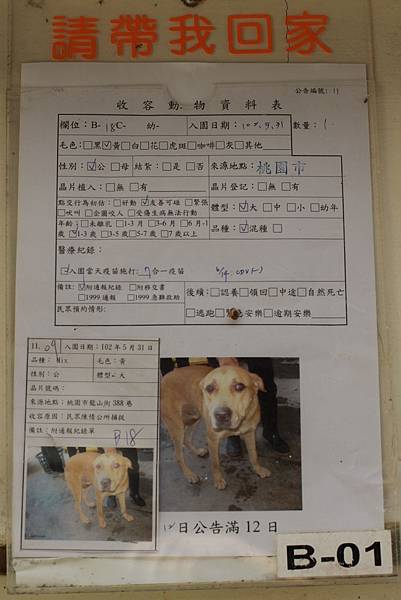 請帶我回家
公告編號: 11
收容動物資料表
欄位:B-18C- 幼-
入園日期:102.5.31
數量: 1
毛色:□黑☑黃□白□花□虎斑□咖啡□灰□其他
性別:☑公□母 結紮:□是□否
來源地點:桃園市
晶片植入:□無□有
晶片登記:□無□有
點交行為初估:□好動☑友善可碰□緊張
□吠叫 □企圖咬人 □受傷生病無法行動
體型:☑大□中□小□幼年
年齡:□未離乳□1-3月□3-6月□6月-1
歲☑1-3歲□3-5歲□5-7歲□7歲以上
品種:☑混種□
醫療紀錄:
☑入園當天疫苗施打:7合一疫苗
備註:☑附通報紀錄□附移交書
□1999通報 □1999急難救助
民眾預約情形:
後續:□認養□領回□中途□自然死亡
□逃跑□緊急安樂□逾期安樂□
11.091 入園日期:102年5月31日
品種:Mix 毛色:黃
性別:公 體型:大
晶片號碼:
來源地點:桃園市龍山街388巷
收容原因:民眾陳情公所捕捉
備註:附通報紀錄單
B18
12/日公告滿12日
B-01